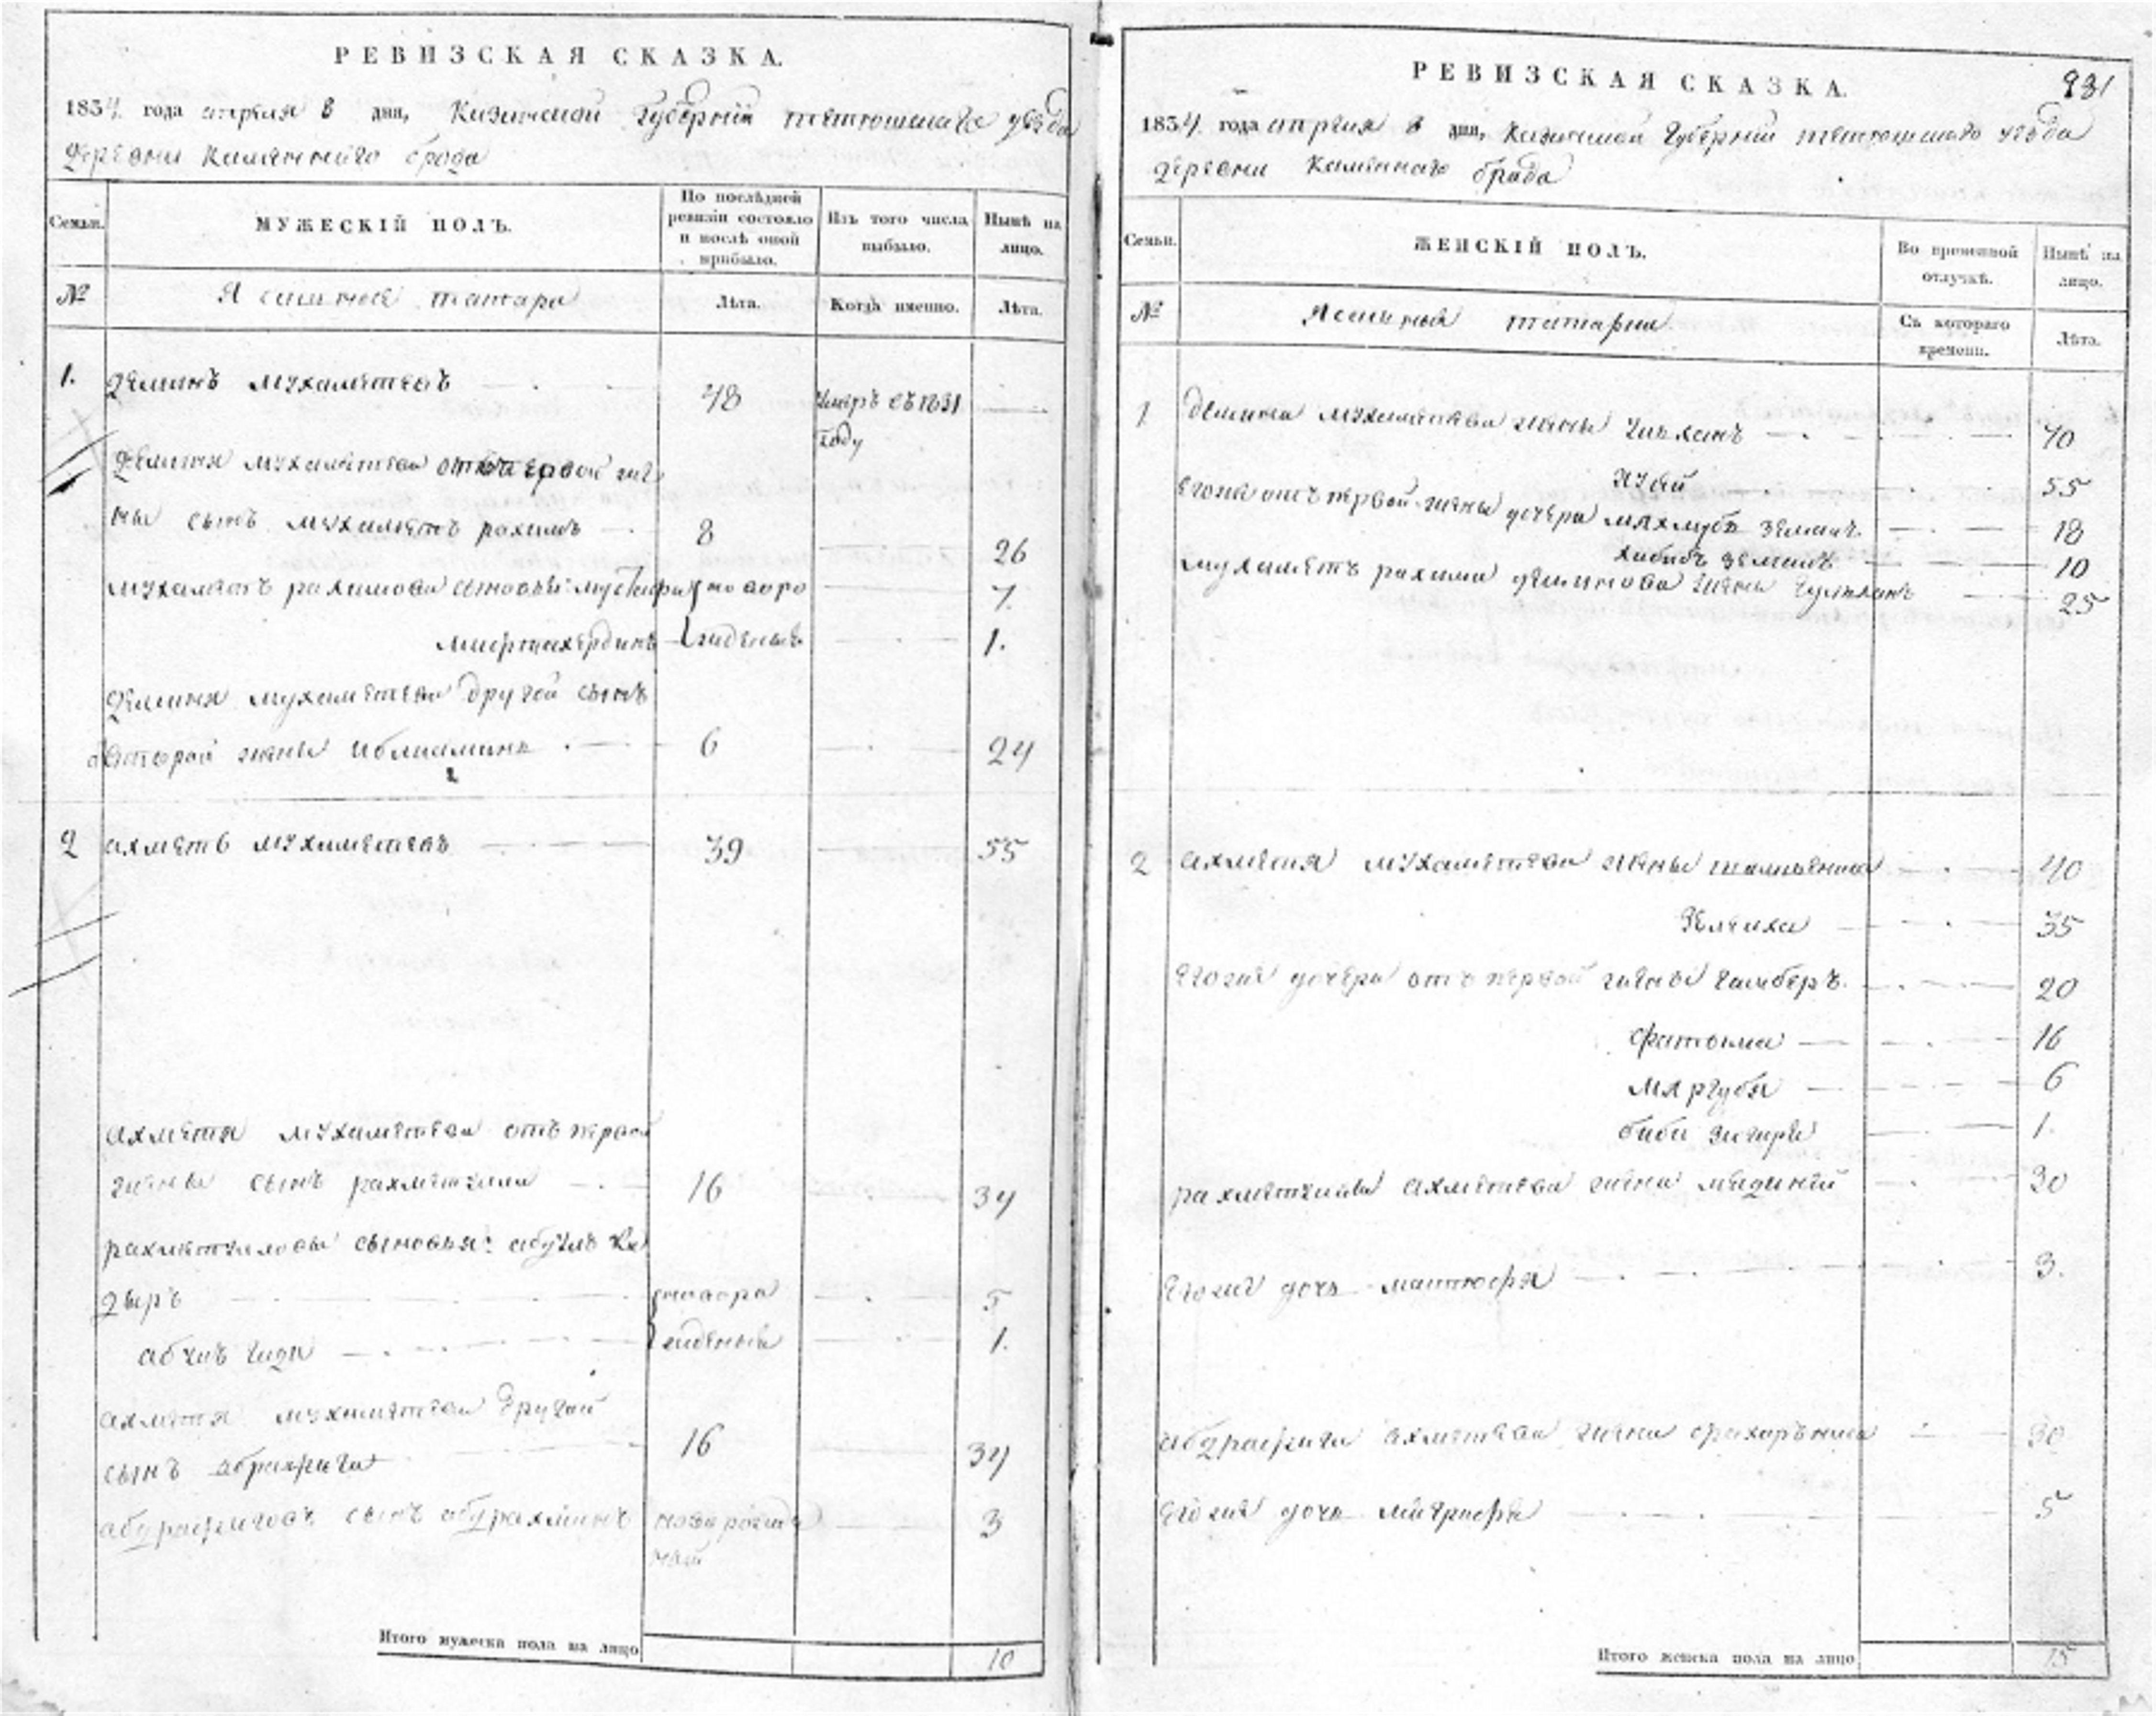 РЕВИЗСКАЯ СКАЗКА.
1834. года апреля 8 дня, Казанской Губернии тетюшскаго уезда
деревни Каменнаго брода
Семьи.
МУЖЕСКІЙ ПОЛЪ.
По послѣдней ревизіи состояло и послѣ оной прибыло.
Изъ того числа выбыло.
Нынѣ на лицо.
№
Ясашной татара
Лѣта.
Когда именно.
Лѣта.
1. Деминъ мухаметевъ 48 Умеръ въ 1831 году
Демина мухаметева от первой же
ны сынъ мухаметъ рахимъ 8 26
мухаметъ рахимова сыновья: мустафа новоро 7.
мифтахердинъ жденные 1.
Демина мухаметева другой сынъ
второй жены 6 24
2 ахметъ мухаметевъ 39 55
ахметя мухаметева отъ первой
жены сынъ рахметулла 16 34
рахметуллова сыновья: абдулъ ка
дыръ новоро 5
жденный 1.
ахметя мухаметева другой
сынъ абрафига 16 34
абдрафигов сынъ абдрахминъ новорожде 3
ной
Итого мужеска пола на лицо 10
РЕВИЗСКАЯ СКАЗКА.
931
1834. года апреля 8 дня, Казанской Губернии тетюшскаго уезда
деревни Каменнаго брода
Семьи.
ЖЕНСКІЙ ПОЛЪ.
Во временной отлучкѣ.
Нынѣ на лицо.
№
Ясашныя татарки
Съ котораго времени.
Лѣта.
1. Демина мухаметева жены 40
55
Егожъ отъ первой жены дочери махмуба земалъ 18
хабибъ земалъ 10
мухаметъ рахима деминова жена 25
2 ахметя мухаметева жены 40
Зелиха 35
Егоже дочери отъ первой жены гамберъ 20
фатыма 16
маргуба 6
биби 1.
рахметуллы ахметева жена мядиний 30
Егоже дочь 3.
абдрафига ахметева жена фахарьниса 30
Егоже дочь 5
Итого женска пола на лицо 15